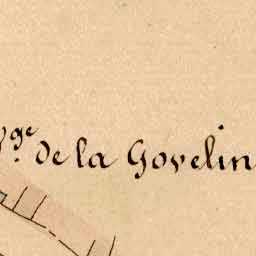 Vge. de la Govelin